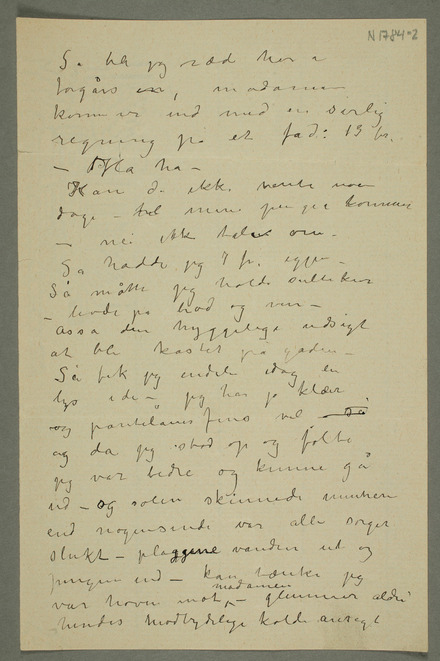 N 1784-2
Så ble jeg ræd her i
forgårs en, madamen
kommer ind med en svær lig
regning på et fad: 13 fr.
– Ha ha –
Kan De ikke vente noen
dage – til mine penge kommer
– nei ikke tale om.
Så hadde jeg 7 fr. igjen –
Så måtte jeg holde sultekur
– levde på brød og vin –
Assa den hyggelige udsigt
at ble kastet på gaden –
Så fik jeg endelig idag en
lys ide – jeg har jo klær
og pantelaaner fins vel – så
og da jeg stod op og følte
jeg var bedre og kunne gå
ud – og solen skinnede muntrere
end nogensinde var alle sorger
slukt – plaggene vandre ud og
pengene ind – kan tænke jeg
var hoven mot madamen – glemmer aldri
hendes modbydelige kolde ansigt